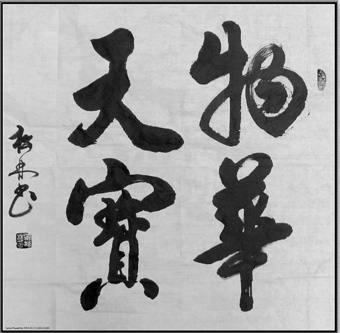 物華
天寶